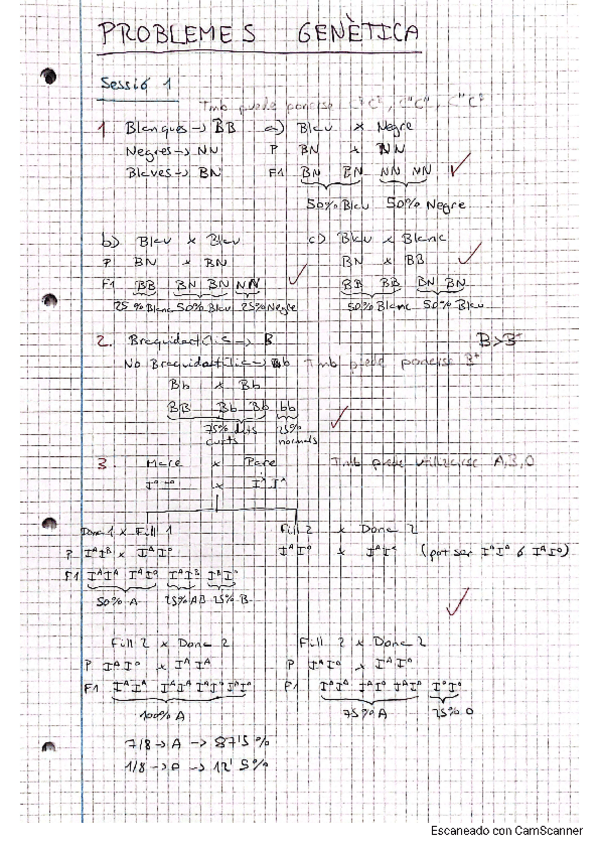 PROBLEMES GENÈTICA
Sessió 1
Tmb puede ponerse
1. Blanques → BB a) Blau x Negre
Negres → NN P BN x NN
Blaves → BN F1 BN BN NN NN
50% Blau 50% Negre
b) Blau x Blau c) Blau x Blanc
P BN x BN BN x BB
F1 BB BN BN NN BB BB BN BN
25% Blanc 50% Blau 25% Negre 50% Blanc 50% Blau
2. Braquidactílic → B
No Braquidactílic → bb Tmb puede ponerse B⁺
Bb x Bb
BB Bb Bb bb
75% dits curts 25% normals
3. Mare x Pare Tmb puede utilizarse A, B, O
x
Dona 1 x Fill 1 Fill 2 x Dona 2
P IᴬIᴮ x IᴬI⁰ IᴬI⁰ x (pot ser ó IᴬI⁰)
F1 IᴬIᴬ IᴬI⁰ IᴬIᴮ IᴮI⁰
50% A 25% AB 25% B
Fill 2 x Dona 2 Fill 2 x Dona 2
P IᴬI⁰ x IᴬIᴬ P IᴬI⁰ x IᴬI⁰
F1 IᴬIᴬ IᴬIᴬ IᴬI⁰ IᴬI⁰ F1 IᴬIᴬ IᴬI⁰ IᴬI⁰ I⁰I⁰
100% A 75% A 25% O
7/8 → A → 87'5%
1/8 → → 12'5%
Escaneado con CamScanner